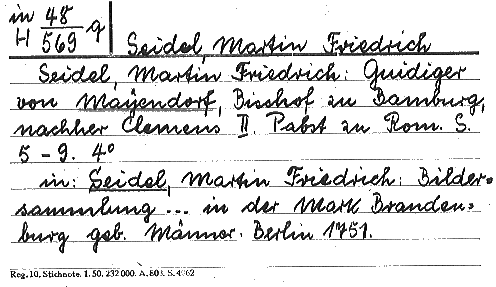 in 48
H 569 q
Seidel, Martin Friedrich
Seidel, Martin Friedrich: Quidiger
von Mayendorf, Bischof zu Bamburg,
nachher Clemens II. Pabst zu Rom. S.
5-9. 4°
in: Seidel, Martin Friedrich: Bilder-
sammlung ... in der Mark Branden-
burg geb. Männer. Berlin 1751.
Reg. 10. Stichnote. 1. 50. 232 000. A. 803. S.